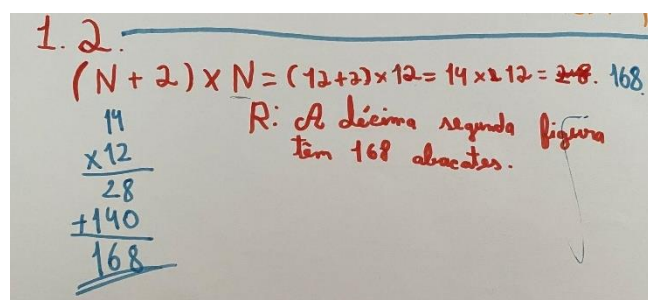 1.2.
(N + 2) x N = (12+2) x 12 = 14 x 12 = 28. 168.
14
x 12
28
+140
168
R: A décima segunda figura
têm 168 abacates.